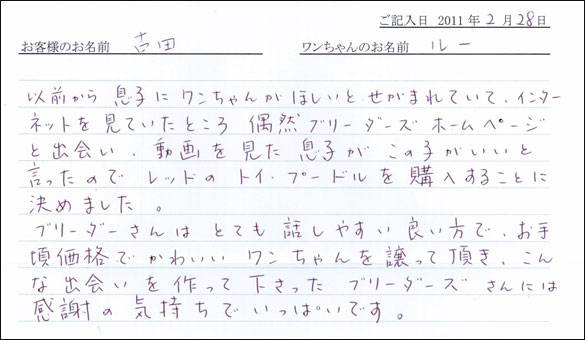 ご記入日 2011年2月28日
お客様のお名前 吉田 ワンちゃんのお名前 ルー
以前から息子にワンちゃんがほしいとせがまれていて、インター
ネットを見ていたところ偶然ブリーダーズホームページ
と出会い、動画を見た息子がこの子がいいと
言ったのでレッドのトイ・プードルを購入することに
決めました。
ブリーダーさんはとても話しやすい良い方で、お手
頃価格でかわいいワンちゃんを譲って頂き、こん
な出会いを作って下さったブリーダーズさんには
感謝の気持ちでいっぱいです。